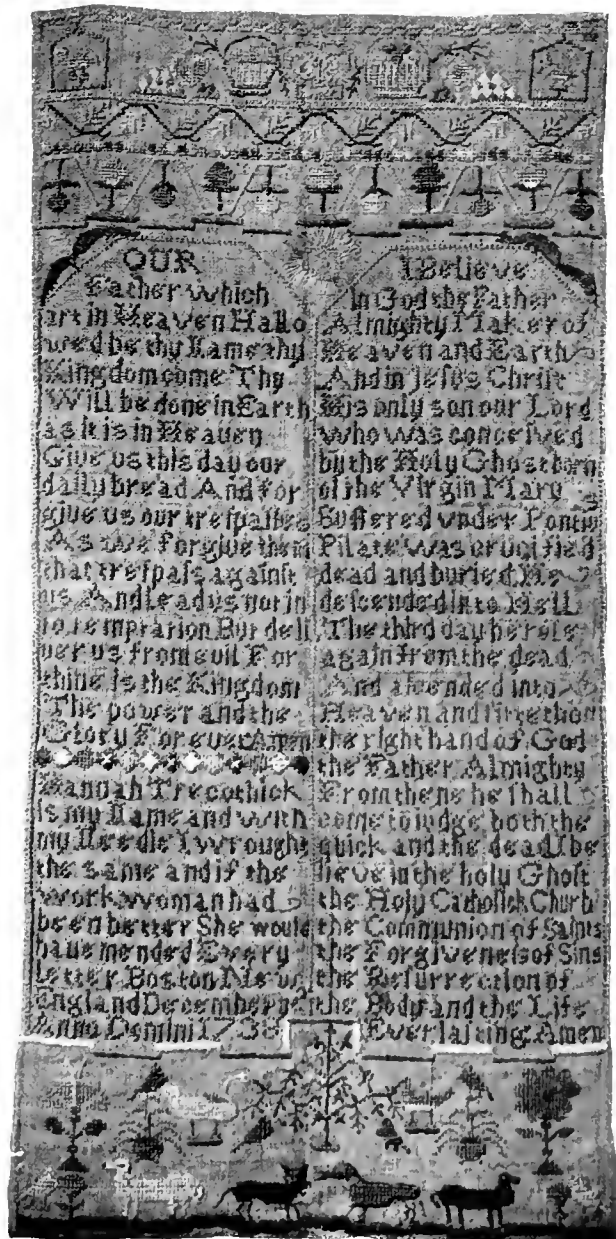 OUR
Father which
art in Heaven Hallo
wed be thy Name thy
Kingdom come Thy
Will be done in Earth
as it is in Heaven
Give us this day our
daily bread And for
give us our treſpaſſes
As we forgive them
that treſpaſs againſt
us And Lead us not in
to temptation But deli
ver us from evil For
thine is the Kingdom
The power and the
Glory For ever Amen
Hannah Trecothick
is my Name and with
my Needle I wrought
the same and if the
work woman had
been better She would
have mended Every
Letter Boston New
England December
Anno Domini 1738
I Believe
in God the Father
Almighty Maker of
Heaven and Earth
And in Jeſus Chriſt
His only son our Lord
who was conceived
by the Holy Ghost born
of the Virgin Mary
Suffered vnder Pontius
Pilate was crucified
dead and buried He
deſcended into Hell
The third day he roſe
again from the dead
And aſcended into
Heaven and ſitteth on
the right hand of God
the Father Almighty
From thens he ſhall
come to judge both the
quick and the dead I be
lieve in the holy Ghoſt
the Holy Catholick Church
the Communion of Saints
the Forgiveneſs of Sins
the Reſurrection of
the Body and the Life
Everlaſting Amen